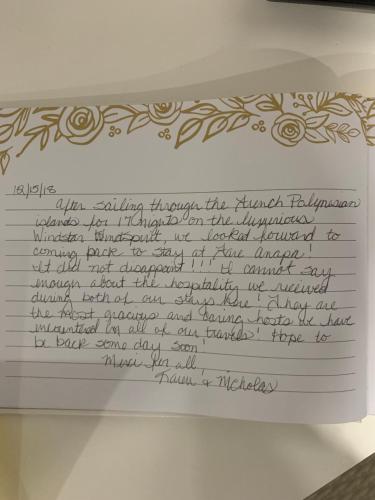 12/15/18
After sailing through the French Polynesian
islands for 17 nights on the luxurious
Windstar Windspirit, we looked forward to
coming back to stay at Fare Arapa!
It did not disappoint!!! I cannot say
enough about the hospitality we received
during both of our stays here! They are
the most gracious and caring hosts we have
encountered in all of our travels! Hope to
be back some day soon!
Merci for all,
Karen & Nicholas